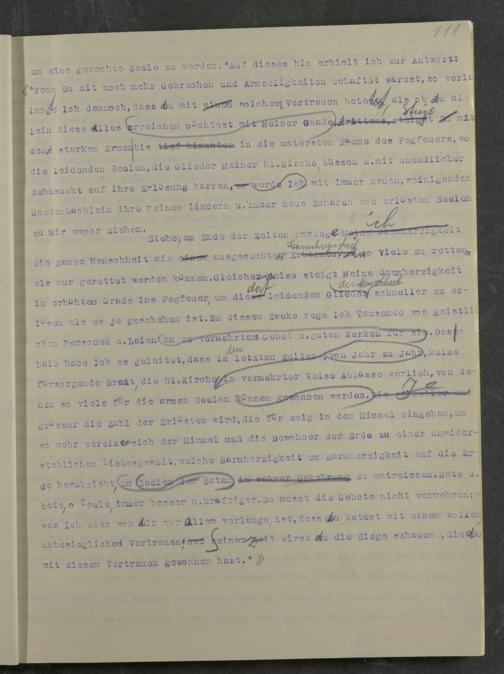 110
um eine gerechte Seele zu werden. "Auf dieses hin erhielt ich zur Antwort:
"Wenn Du mit noch mehr Gebrechen und Armseligkeiten behaftet wärest, so verlan-
ge Ich dennoch, dass du mit einem solchem Vertrauen betetest, als ob du al-
lein diess Alles erreichen möchtest mit Meiner Gnade, drittens, Steige mit
den starken Armen bis tief hinunter in die untersten Räume des Fegfeuers, wo
die leidenden Seelen, die Glieder Meiner hl. Kirche, büssen u. mit unendlicher
Sehnsucht auf ihre Erlösung harren, so werde Ich mit immer neuen, reinigenden
Gnadenbächlein ihre Peinen lindern u. immer neue Scharen von erlösten Seelen
zu Mir empor ziehen.
Siehe, am Ende der Zeiten umringe ich Meine Barmherzigkeit
die ganze Menschheit mit einem ausgesuchten Barmherzigkeit Erbarmen, um so Viele zu retten,
als nur gerettet werden können. Gleicherweise steigt Meine Barmherzigkeit
in erhöhtem Grade ins Fegfeuer, um diese leidenden Glieder schneller zu er-
lösen als es je geschehen ist. Zu diesem Zweke rege Ich Tausende von geistli-
chen Personen u. Laien an zu vermehrtem Gebet u. guten Werken für sie. Des-
halb habe Ich es geleitet, dass in den letzten Zeiten, von Jahr zu Jahr, Meine
fürsorgende Braut, die hl. Kirche, in vermehrter Weise Ablässe verlieh, von de-
nen so viele für die armen Seelen können gewonnen werden. Je
grösser die Zahl der Erlösten wird, die für ewig in den Himmel eingehen, um
so mehr vereinen sich der Himmel und die Bewohner der Erde zu einer unwider-
stehlichen Liebesgewalt, welche Barmherzigkeit um Barmherzigkeit auf die Er-
de herabzieht, um Seelen dem Satan in wahrer Bekehrung zu entreissen. Bete u.
bete, o Seele, immer besser u. kräftiger. Du musst die Gebete nicht vermehren;
was Ich aber von dir vor Allem verlange, ist, dass du betest mit einem vollen
unbesieglichem Vertrauen, und seinerzeit wirst du die Siege schauen, die du
mit diesem Vertrauen gewonnen hast."